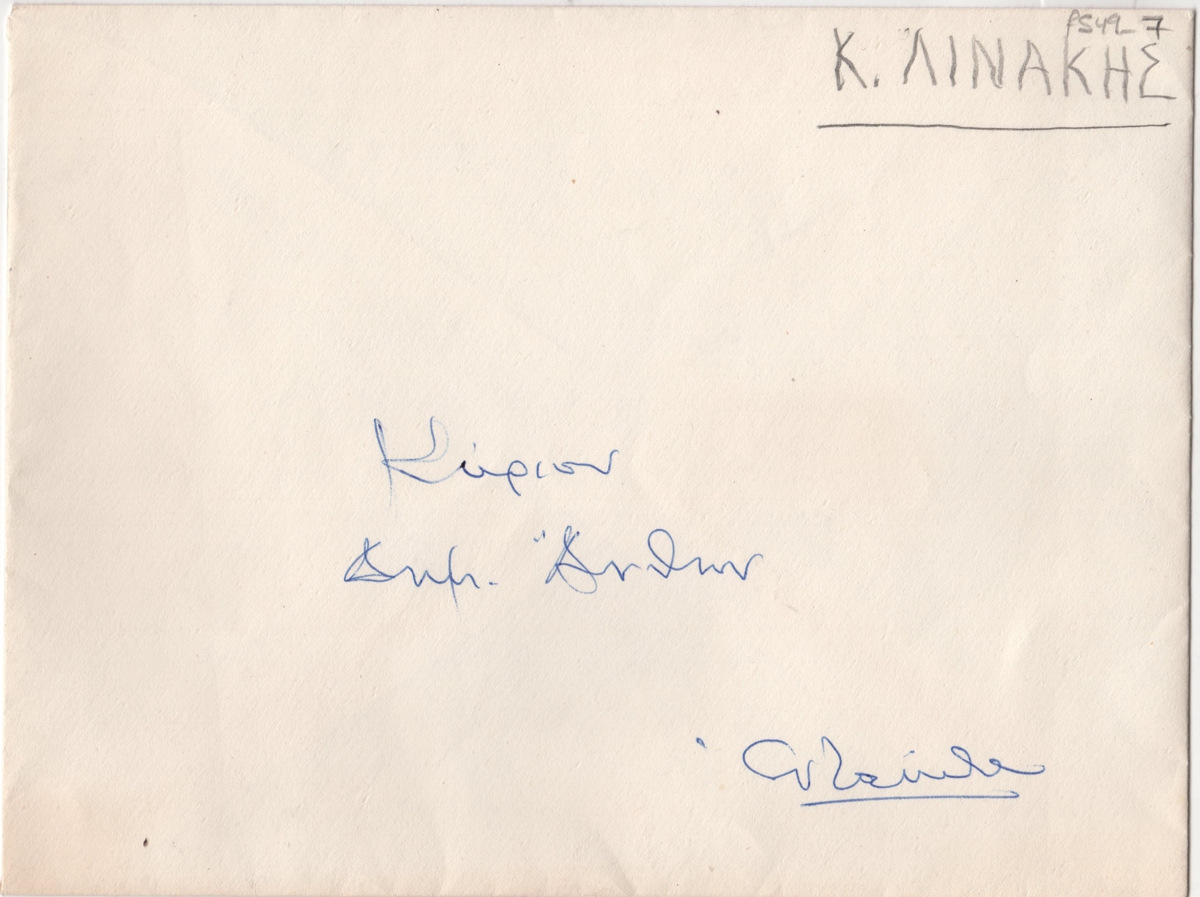 PS49_7
Κ. ΛΙΝΑΚΗΣ
Κύριον
Δημ.
Ἐνταῦθα